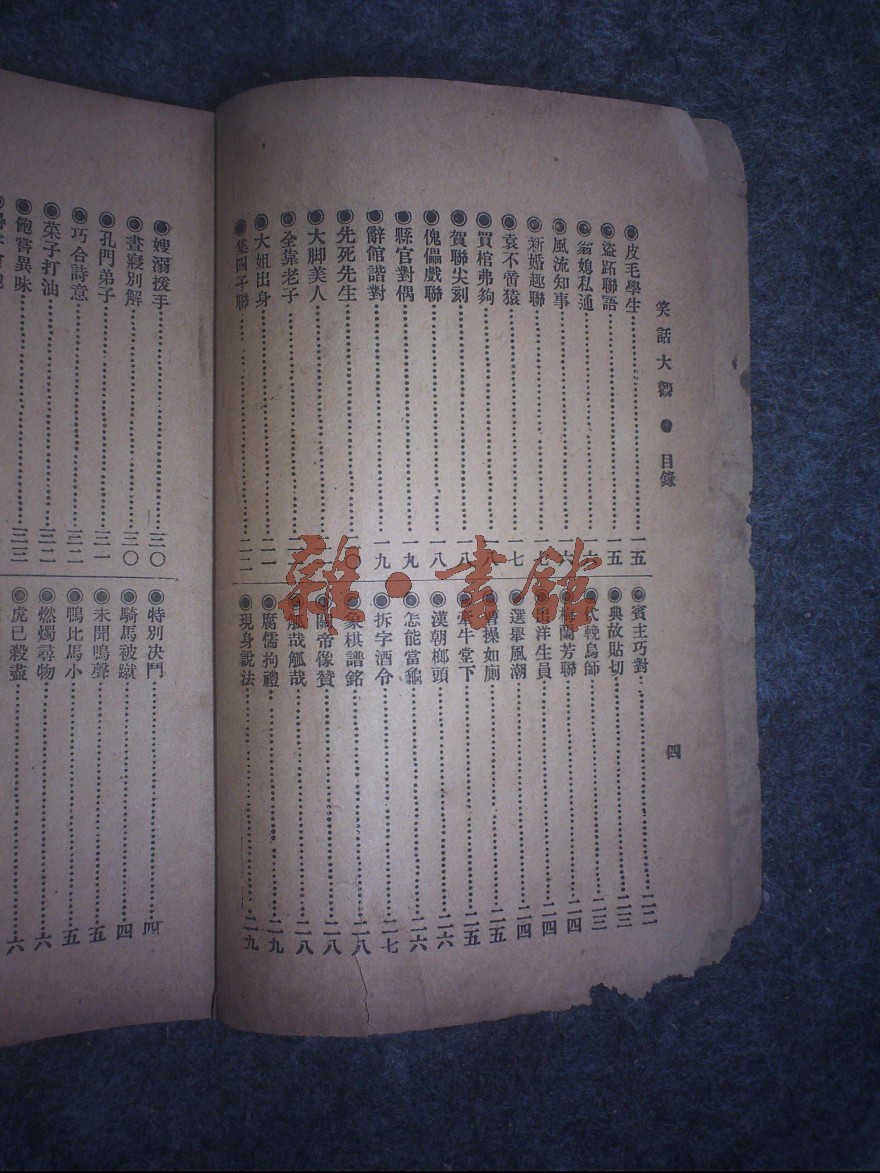 笑話大觀 ● 目錄
四
◉皮毛學生⋯⋯一五
◉盜跖聯語⋯⋯一五
◉翁媳私通⋯⋯一六
◉風流知事⋯⋯一六
◉新婚趣聯⋯⋯一七
◉袁不啻猿⋯⋯一七
◉買棺弗夠⋯⋯一八
◉賀聯尖刻⋯⋯一八
◉傀儡戲聯⋯⋯一八
◉縣官對偶⋯⋯一九
◉辭館諧對⋯⋯一九
◉先死先生⋯⋯二〇
◉大脚美人
◉全靠老子
◉大姐出身⋯⋯二一
◉集四子聯⋯⋯二二
◉賓主巧對⋯⋯二二
◉典故貼切⋯⋯二三
◉代輓烏師⋯⋯二三
◉梅蘭芳聯⋯⋯二四
◉出洋生員⋯⋯二四
◉選舉風潮⋯⋯二四
◉曹操如廁⋯⋯二五
◉牽牛堂下⋯⋯二五
◉漢朝榔頭⋯⋯二六
◉怎能當龜⋯⋯二六
◉拆字酒令⋯⋯二七
◉象棋譜銘⋯⋯二八
◉關帝像贊⋯⋯二八
◉觚哉觚哉⋯⋯二八
◉腐儒拘禮⋯⋯二九
◉現身說法⋯⋯二九
◉嫂溺援手⋯⋯三〇
◉晝寢別解⋯⋯三〇
◉孔門弟子⋯⋯三一
◉巧合詩意⋯⋯三二
◉菜子打油⋯⋯三二
◉飽嘗異味⋯⋯三三
◉特別决鬥⋯⋯四
◉騎馬被蹴⋯⋯四
◉未聞鳴聲⋯⋯五
◉鴨比馬小⋯⋯五
◉燃燭尋物⋯⋯六
◉虎已殺盡⋯⋯六
雜·書館